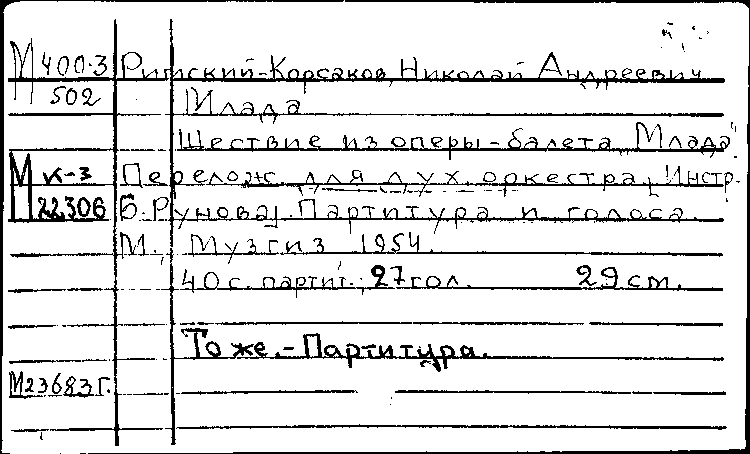 М 400-3 Римский-Корсаков, Николай Андреевич
502 Млада
Шествие из оперы-балета "Млада"
М к-3 Перелож. для дух. оркестра [Инстр.
22306 Б. Рунова]. Партитура и голоса.
М., Музгиз 1954.
40 с. партит.; 27 гол. 29 см.
То же.-Партитура.
М23683 Г.